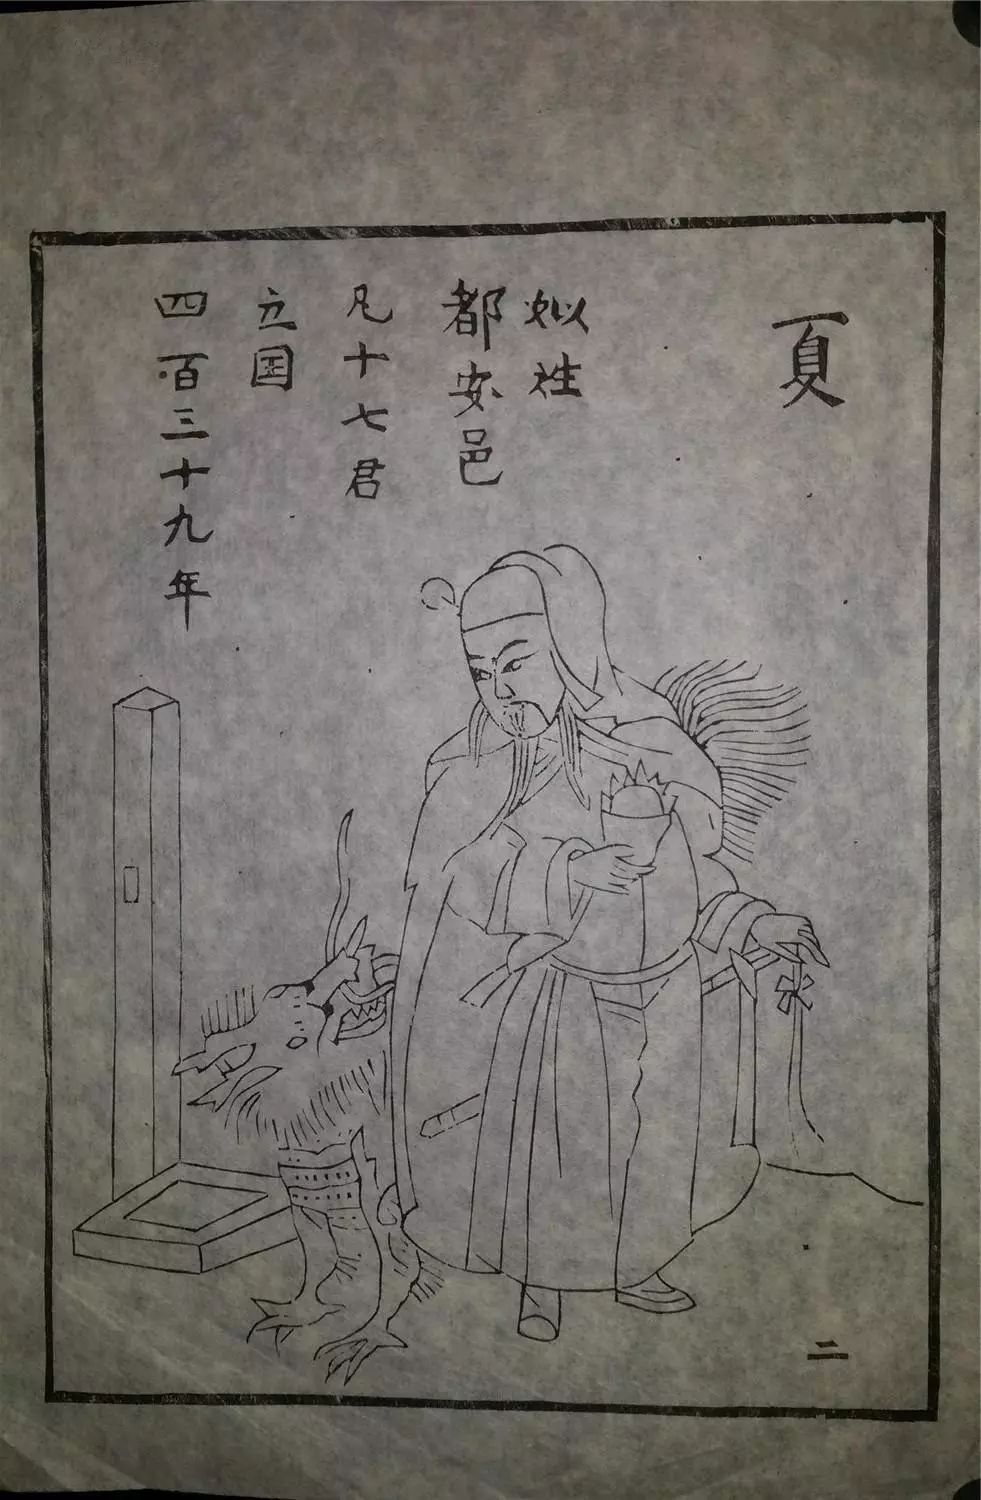 夏
姒姓
都安邑
凡十七君
立国
四百三十九年
二